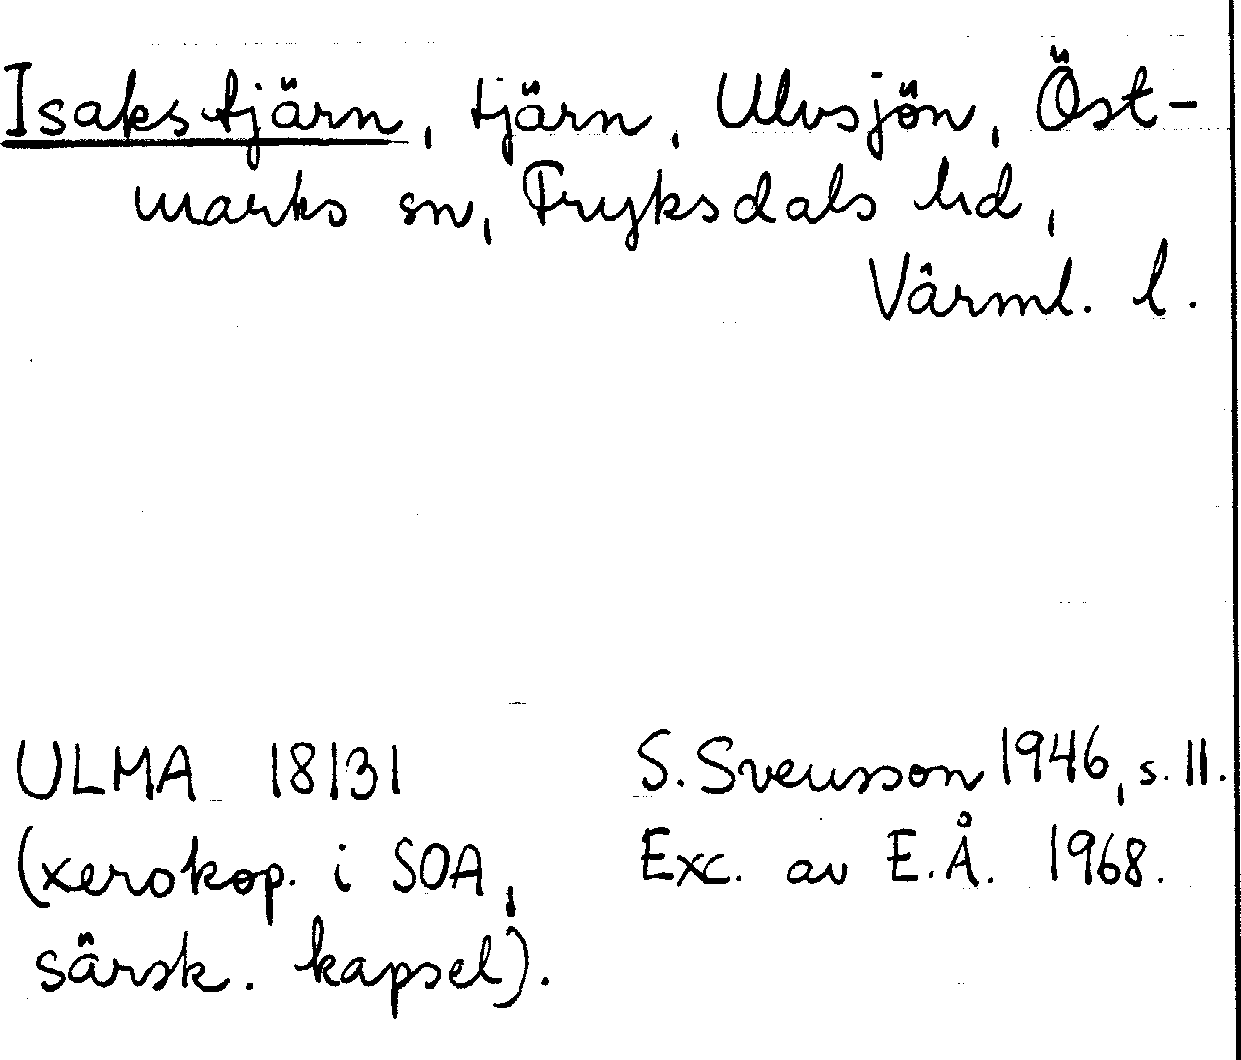 Isakstjärn, tjärn, Ulvsjön, Öst-
marks sn, Fryksdals hd,
Värml. l.
ULMA 18131 S. Svensson 1946, s. 11.
(xerokop. i SOA, Exc. av E.Å. 1968.
särsk. kapsel).